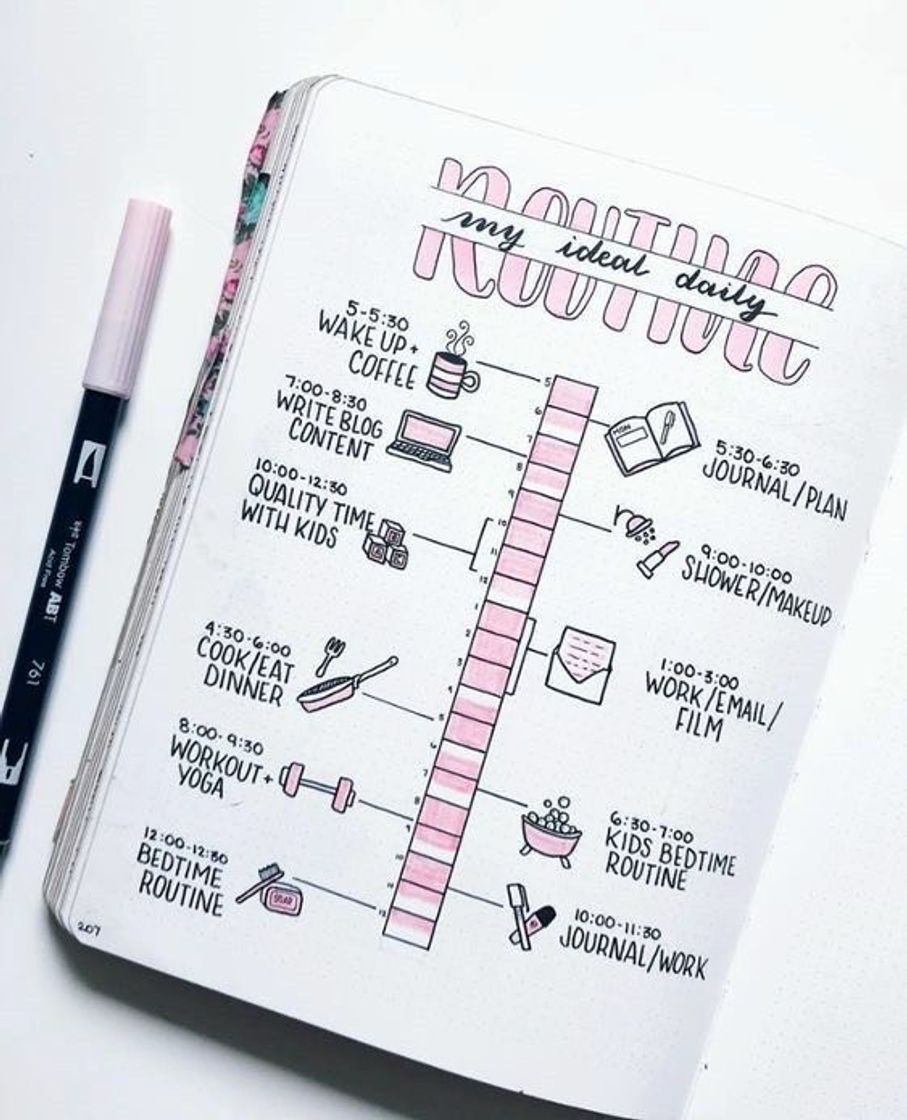 ROUTINE
my ideal daily
5-5:30
WAKE UP +
COFFEE
5:30-6:30
JOURNAL/PLAN
MON
7:00-8:30
WRITE BLOG
CONTENT
9:00-10:00
SHOWER/MAKEUP
10:00-12:30
QUALITY TIME
WITH KIDS
1:00-3:00
WORK/EMAIL/
FILM
4:30-6:00
COOK/EAT
DINNER
6:30-7:00
KIDS BEDTIME
ROUTINE
8:00-9:30
WORKOUT +
YOGA
10:00-11:30
JOURNAL/WORK
12:00-12:30
BEDTIME
ROUTINE
SOAP
5
6
7
8
9
10
11
12
1
2
3
4
5
6
7
8
9
10
11
12
207
Tombow ABT
Acid Free
761